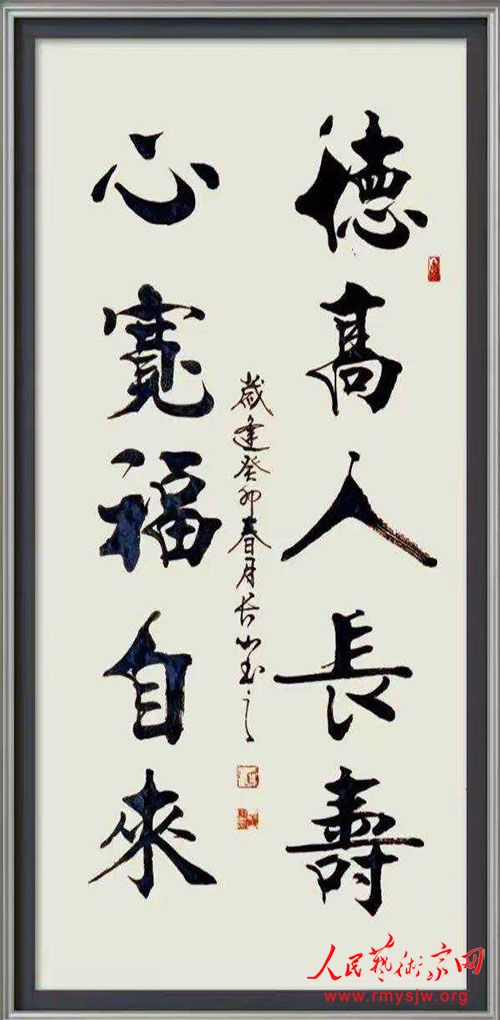 德高人長壽
心寬福自來
歲逢癸卯春月長山玉之
人民藝術家网
www.rmysjw.org